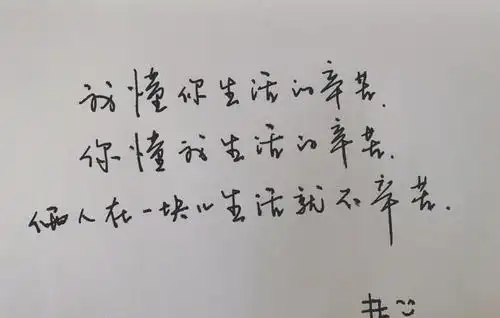 我懂你生活的辛苦.
你懂我生活的辛苦.
俩人在一块儿生活就不辛苦.